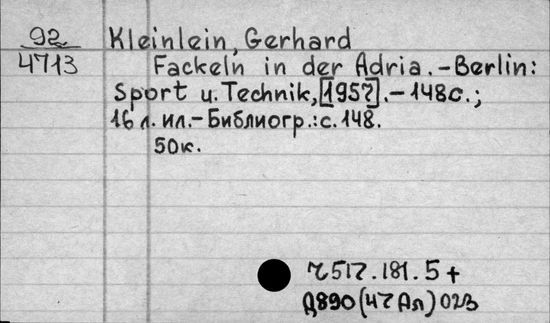 92
4713
Kleinlein, Gerhard
Fackeln in der Adria. - Berlin:
Sport u. Technik, [195?]. - 148с.;
16 л. ил. - Библиогр.: с. 148.
50к.
517.181.5 +
Д890(47Ал)023